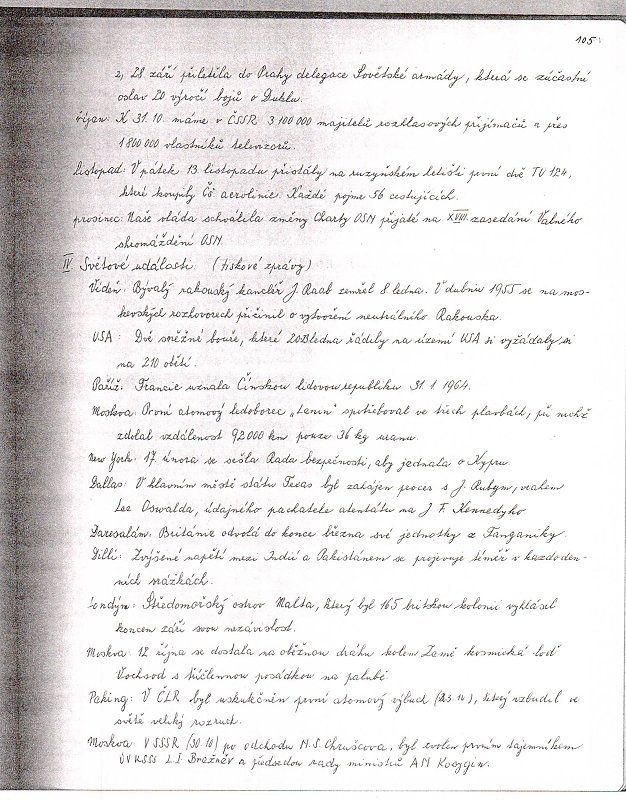 105
2, 28 září přiletěla do Prahy delegace Sovětské armády, která se zúčastní
oslav 20 výročí bojů o Duklu.
říjen: K 31.10. máme v ČSSR 3 100 000 majitelů rozhlasových přijímačů a přes
1 800 000 vlastníků televizorů.
Listopad: V pátek 13 listopadu přistály na ruzyňském letišti první dvě TU 124,
které koupily Čs. aerolinie. Každé pojme 56 cestujících.
prosinec: Naše vláda schválila změny Charty OSN přijaté na XVIII. zasedání Valného
shromáždění OSN.
IV Světové události. (tiskové zprávy)
Vídeň: Bývalý rakouský kancléř J. Raab zemřel 8 ledna. V dubnu 1955 se na mos-
kevských rozhovorech přičinil o vytvoření neutrálního Rakouska.
USA: Dvě sněžné bouře, které ledna řádily na území USA si vyžádaly si
na 210 obětí.
Paříž: Francie uznala Čínskou lidovou republiku 31. 1 1964.
Moskva: První atomový ledoborec „Lenin" spotřeboval ve třech plavbách, při nichž
zdolal vzdálenost 92 000 km pouze 36 kg uranu.
New York: 17. února se sešla Rada bezpečnosti, aby jednala o Kypru
Dallas: V hlavním městě státu Texas byl zahájen proces s J. Rubym, vrahem
Lee Oswalda, údajného pachatele atentátu na J. F. Kennedyho
Daresalám: Británie odvolá do konce března své jednotky z Tanganiky.
Dillí: Zvýšené napětí mezi Indií a Pakistánem se projevuje téměř v každoden-
ních srážkách.
Londýn: Středomořský ostrov Malta, který byl 165 britskou kolonií vyhlásil
koncem září svou nezávislost.
Moskva: 12 října se dostala na oběžnou dráhu kolem Země kosmická loď
Vochsod s tříčlennou posádkou na palubě
Peking: V ČLR byl uskutečněn první atomový výbuch který vzbudil ve
světě veliký rozruch.
Moskva V SSSR (30.10) po odchodu N. S. Chruščova, byl zvolen prvním tajemníkem
ÚV KSSS L. I Brežněv a předsedou rady ministrů A N Kosygin.